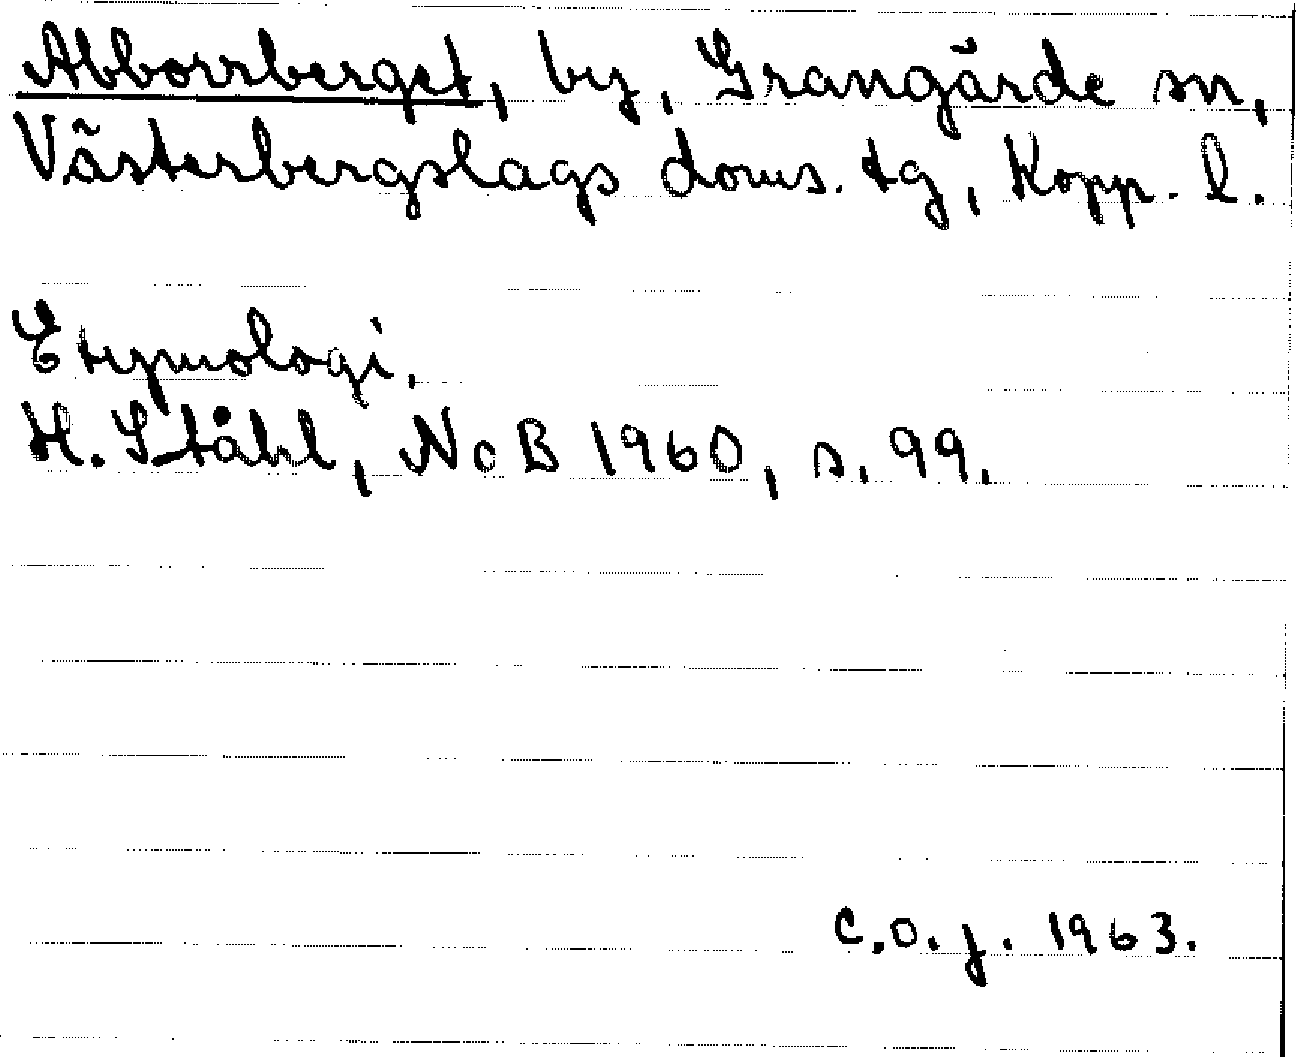 Abborrberget, by, Grangärde sn,
Västerbergslags doms. tg, Kopp. l.
Etymologi.
H. Ståhl, NoB 1960, s. 99.
C.O.J. 1963.